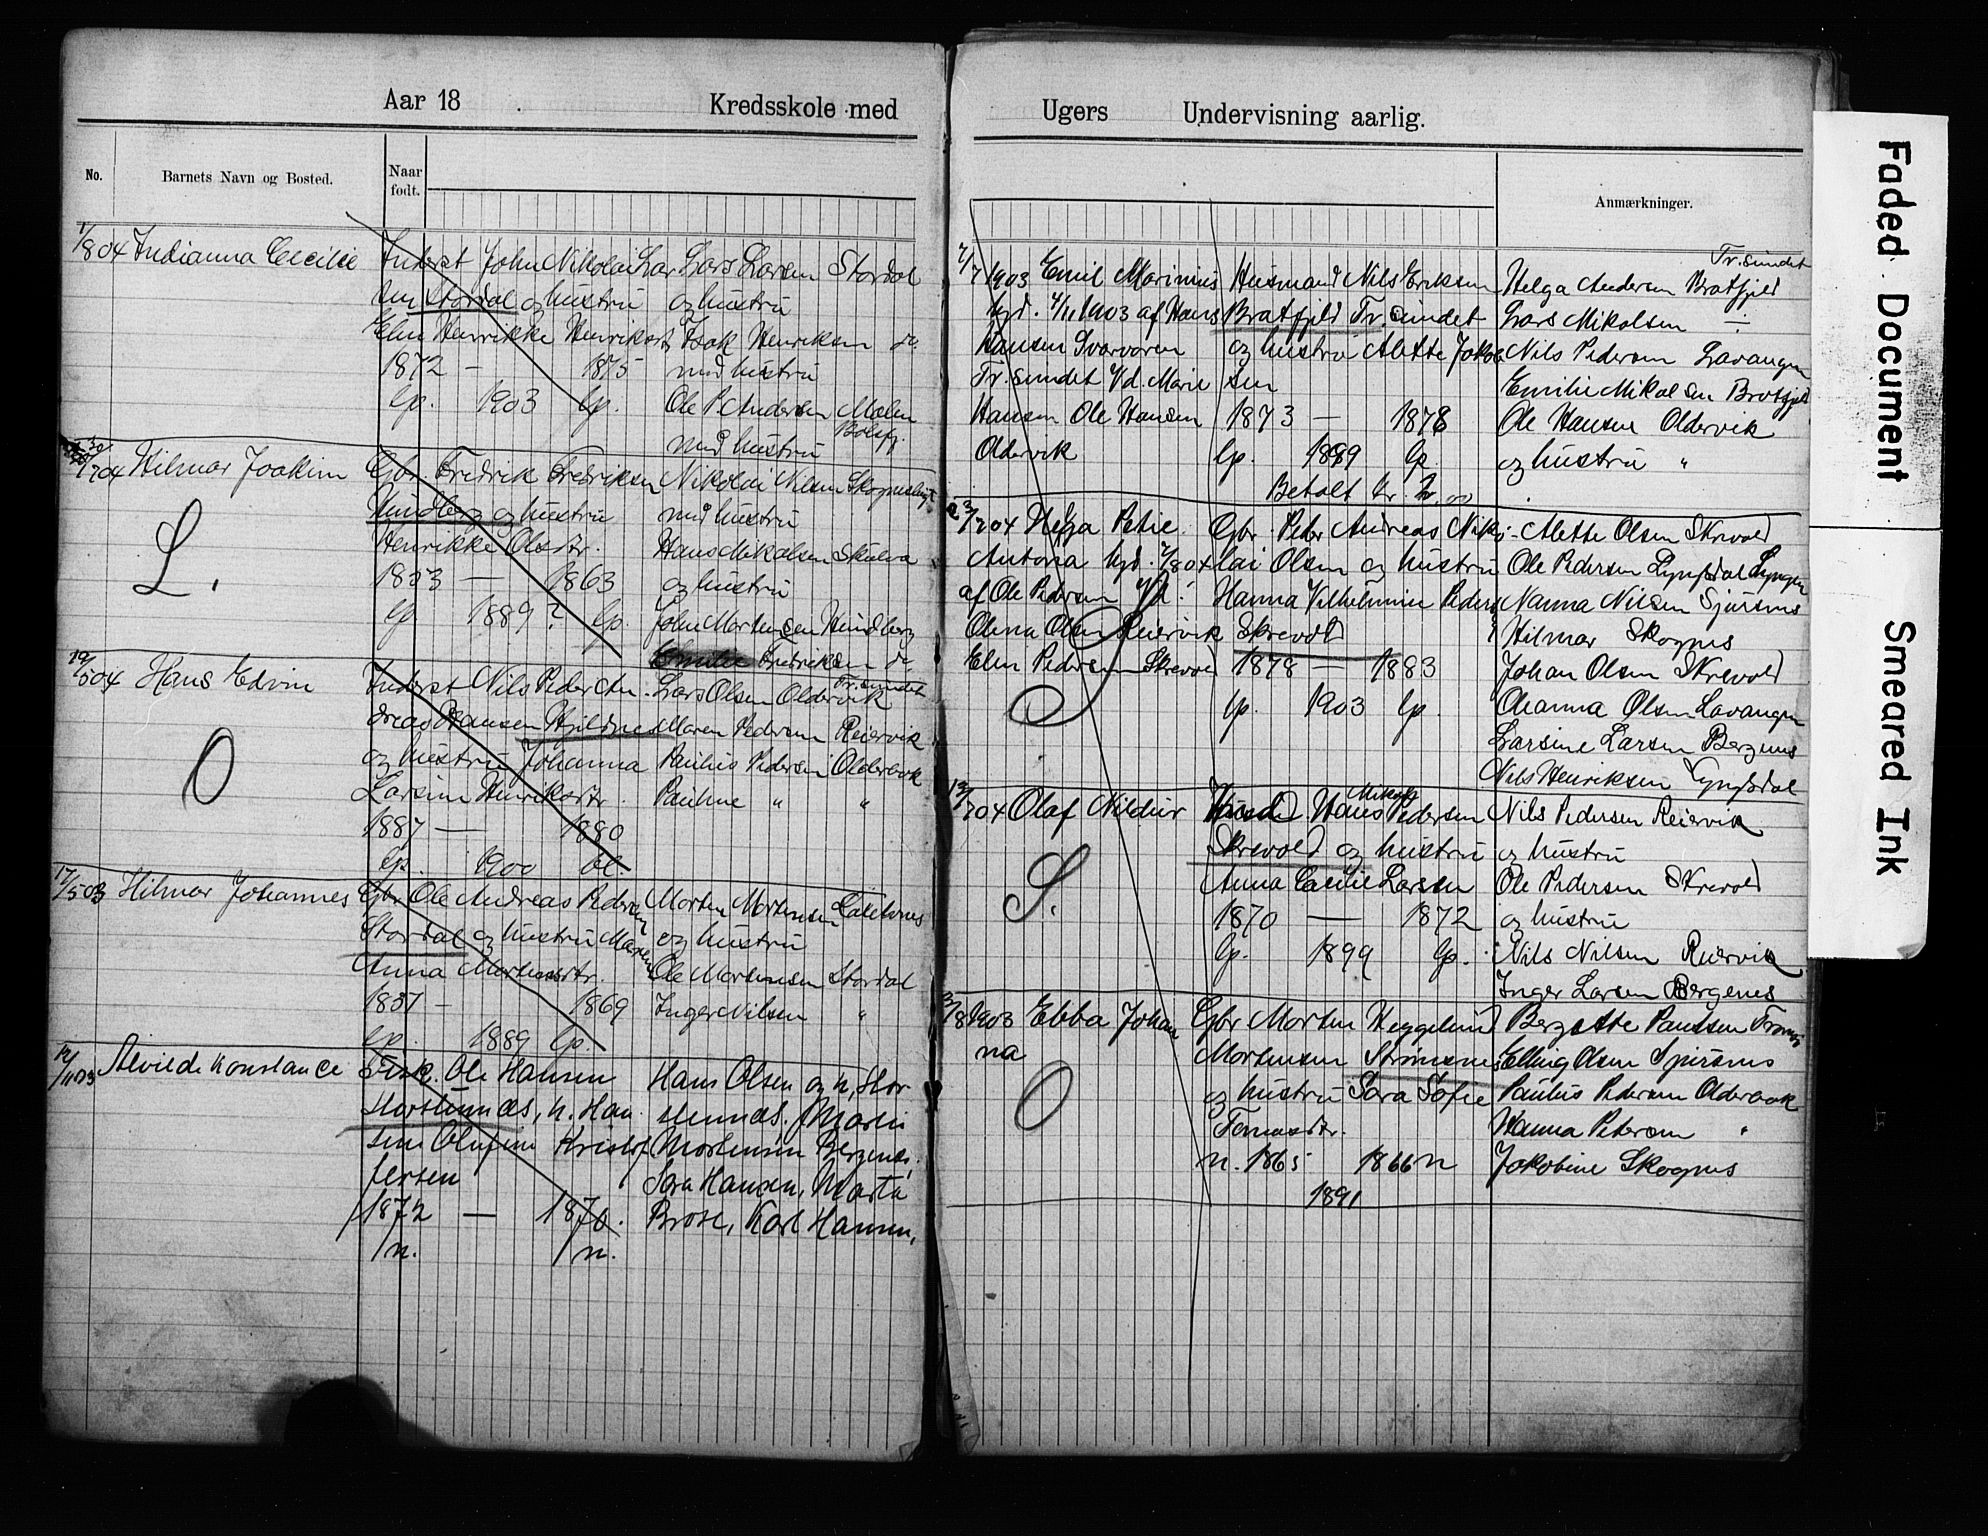 Aar 18 Kredsskole med
No. Barnets Navn og Bosted. Naar født.
1/8 04 Indianna Cecilie
Inderst John Nikolai Lar
sen Stordal og hustru
Elen Henrikke Henriksdtr
1872 — 1875
Gp. 1903 Gp.
Lars Larsen Stordal
og hustru
Isak Henriksen do
med hustru
Ole P. Andersen Malen
Balsfj.
med hustru
30/7 04 Hilmar Joakim
L.
Gbr Fredrik Fredriksen
Hundberg og hustru
Henrikke Olsdtr.
1853 — 1863
Gp 1889? Gp.
Nikolai Nilsen Skognes
med hustru
Hans Mikalsen
og hustru
John Mortensen Hundberg
Emilie Fredriksen do
19/5 04 Hans Edvin
O
Inderst Nils Peder An
dreas Hansen
og hustru Johanna
Larsine Henriksdtr.
1887 — 1880
Gp. 1900
Tr. sundet
Lars Olsen Oldervik
Maren Pedersen Reiervik
Paulus Pedersen Olderbak
Pauline " "
17/5 03 Hilmar Johannes
Gbr Ole Andreas Pedersen
Stordal og hustru Maren
Anna Mortensdtr.
1857 — 1869
Gp. 1889 Gp.
Morten Mortensen
og hustru
Ole Mortensen Stordal
Inger Nilsen "
12/11 03 Alvilde Konstance
Fisk. Ole Hansen
Storstennæs, h. Han
sine Olufine Kristof
fersen
1872 — 1870.
n. n.
Hans Olsen og h, Stor
stennæs. Martin
Mortensen Bergenæs,
Sara Hansen, Marta
Brose, Karl Hansen,
Ugers Undervisning aarlig.
Anmærkninger.
7/7 1903 Emil Marinius
hjd. 4/11 1903 af Hans
Hansen Svarvaren
Tr. sundet Vd. Marie
Hansen Ole Hansen
Oldervik
Husmand Nils Eriksen
Bratfjeld Tr. sundet
og hustru Alette Jakob
sen
1873 — 1878
Gp. 1899 Gp
Betalt Kr. 2,00
Tr. sundet
Helga Andersen Bratfjeld
Lars Mikalsen —
Nils Pedersen Lavangen
Emilie Mikalsen Bratfjeld
Ole Hansen Oldervik
og hustru "
23/7 04 Helga Petie
Antona hjd. 7/8 04
af Ole Pedersen Vd:
Olena Olsen Reiervik
Elen Pedersen Skrevold
Gbr. Peder Andreas Niko
lai Olsen og hustru
Hanna Vilhelmine Peders
Skrevold
1878 — 1883
Gp. 1903 Gp.
Alette Olsen Skrevold
Ole Pedersen Lyngsdal Lyngen
Nanna Nilsen Sjursnes
Hilmar Skognes
Johan Olsen Skrevold
Oleanna Olsen Lavangen
Larsine Larsen Bergnes
Nils Henriksen Lyngsdal
13/7 04 Olaf Nildur
S.
Husm Hans Mikal Pedersen
Skrevold og hustru
Anna Cecilie Larsen
1870 — 1872
Gp. 1899 Gp.
Nils Pedersen Reiervik
og hustru
Ole Pedersen Skrevold
og hustru
Nils Nilsen Reiervik
Inger Larsen Bergenes
3/8 1903 Ebba Johan
na
O
Gbr Morten Heggelund
Mortensen Strømsnes
og hustru Sara Sofie
Tomasdtr.
n. 1865 1866 n
1891
Bergette Paulsen Tromsø
Elling Olsen Sjursnes
Paulus Pedersen Olderbak
Hanna Petersen "
Jakobine Skognes
Faded Document
Smeared Ink